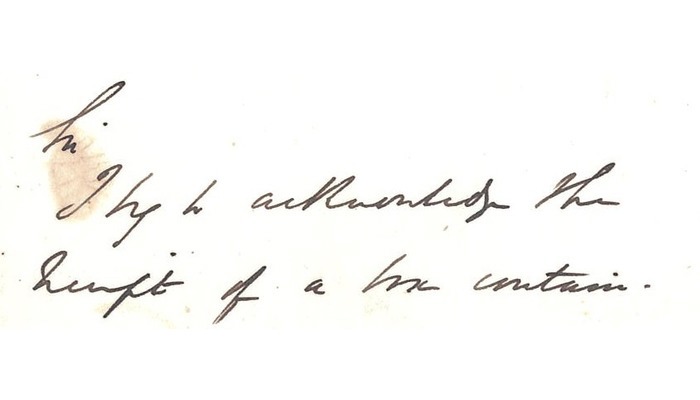 Sir
I beg to acknowledge the
receipt of a box contain-